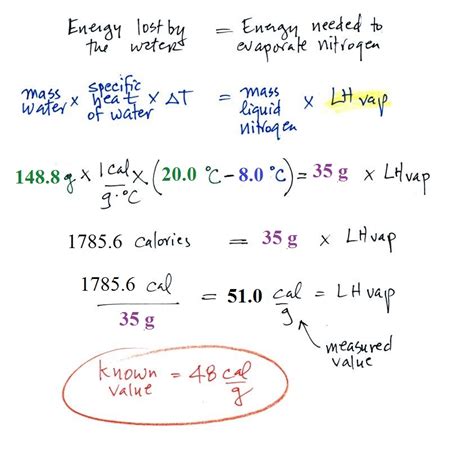 Energy lost by the water = Energy needed to evaporate nitrogen
mass water × specific heat of water × ΔT = mass liquid nitrogen × LH vap
148.8 g × 1 cal / g·°C × (20.0 °C - 8.0 °C) = 35 g × LH vap
1785.6 calories = 35 g × LH vap
1785.6 cal / 35 g = 51.0 cal / g = LH vap
measured value
known value = 48 cal / g